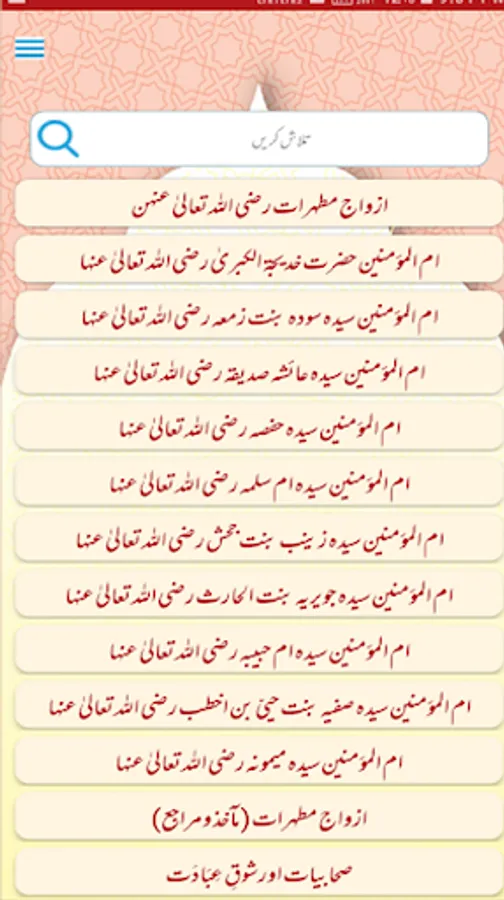 تلاش کریں
ازواج مطہرات رضی اللہ تعالیٰ عنہن
ام المؤمنین حضرت خدیجۃ الکبریٰ رضی اللہ تعالیٰ عنہا
ام المؤمنین سیدہ سودہ بنت زمعہ رضی اللہ تعالیٰ عنہا
ام المؤمنین سیدہ عائشہ صدیقہ رضی اللہ تعالیٰ عنہا
ام المؤمنین سیدہ حفصہ رضی اللہ تعالیٰ عنہا
ام المؤمنین سیدہ ام سلمہ رضی اللہ تعالیٰ عنہا
ام المؤمنین سیدہ زینب بنت جحش رضی اللہ تعالیٰ عنہا
ام المؤمنین سیدہ جویریہ بنت الحارث رضی اللہ تعالیٰ عنہا
ام المؤمنین سیدہ ام حبیبہ رضی اللہ تعالیٰ عنہا
ام المؤمنین سیدہ صفیہ بنت حیّ بن اخطب رضی اللہ تعالیٰ عنہا
ام المؤمنین سیدہ میمونہ رضی اللہ تعالیٰ عنہا
ازواج مطہرات (مآخذ و مراجع)
صحابیات اور شوقِ عِبَادَت